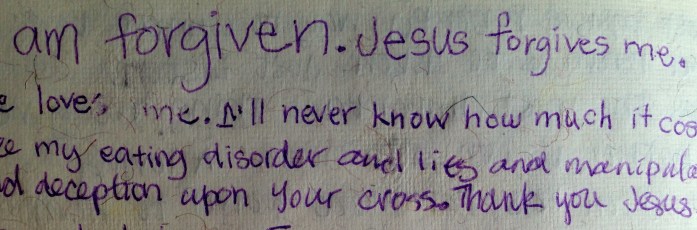 am forgiven. Jesus forgives me.
e loves me. I'll never know how much it cos
my eating disorder and lies and manipula
d deception upon your cross. Thank you Jesus